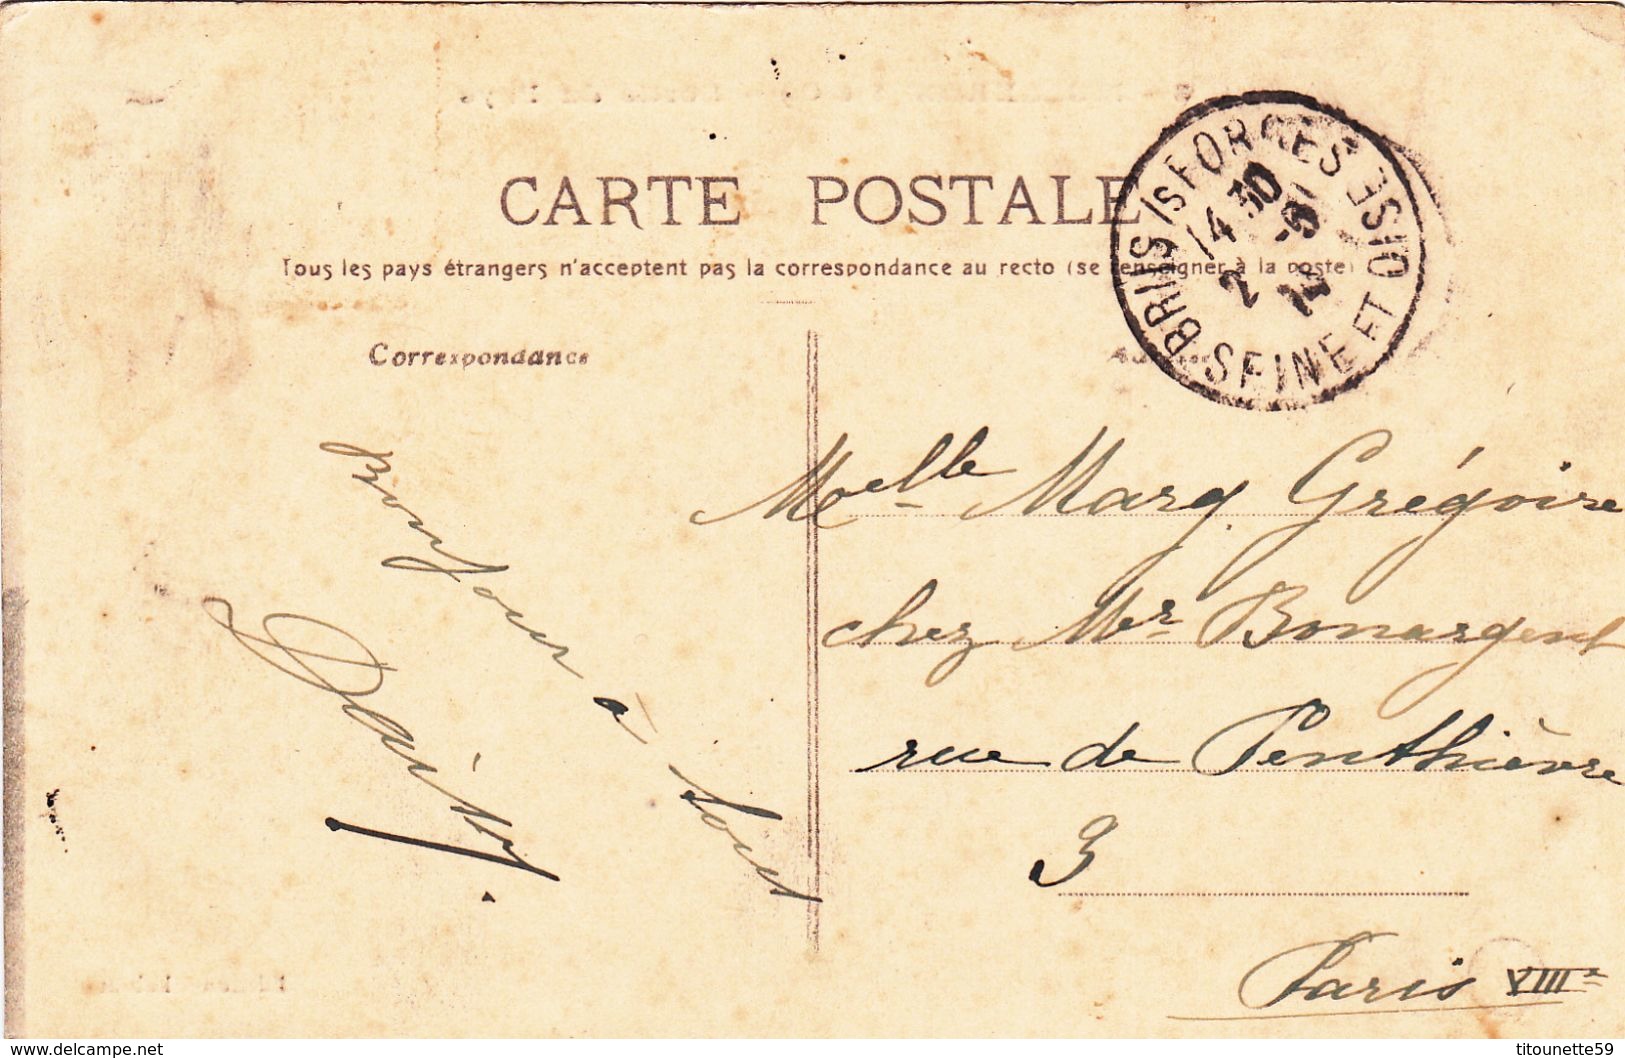 CARTE POSTALE
Tous les pays étrangers n'acceptent pas la correspondance au recto (se renseigner à la poste)
Correspondance
BRIIS Is FORGES
14 30
2 -9
SEINE ET OISE
Moelle Marg. Grégoire
chez Mr Bonargent
rue de Penthièvre
3
Paris VIIIe
Bonjour à tout
© www.delcampe.net
titounette59